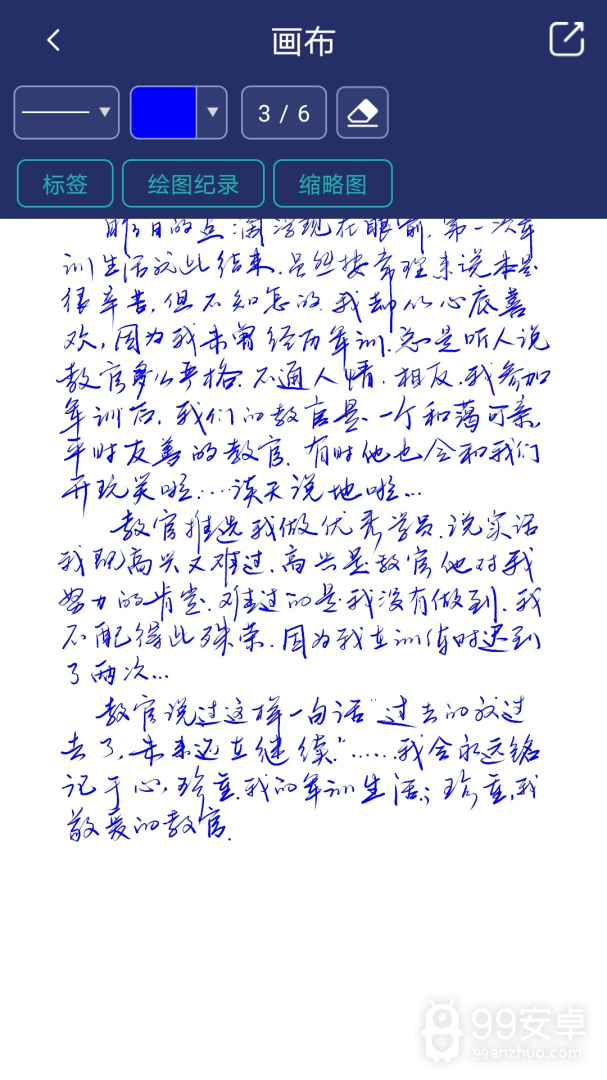 画布
3 / 6
标签
绘图纪录
缩略图
昨日的点滴浮现在眼前.第一次军
训生活就此结束.虽然按常理来说本是
很辛苦,但不知怎的.我却从心底喜
欢,因为我未曾经历军训.总是听人说
教官多么严格.不通人情.相反.我参加
军训后.我们的教官是一个和蔼可亲,
平时友善的教官.有时他也会和我们
开玩笑啦....谈天说地啦...
教官推选我做优秀学员.说实话
我既高兴又难过.高兴是教官他对我
努力的肯定.难过的是我没有做到.我
不配得此殊荣.因为我在训练时迟到
了两次...
教官说过这样一句话"过去的放过
去了,未来还在继续."......我会永远铭
记于心,珍重.我的军训生活;珍重,我
敬爱的教官.
99安卓
99anzhuo.com